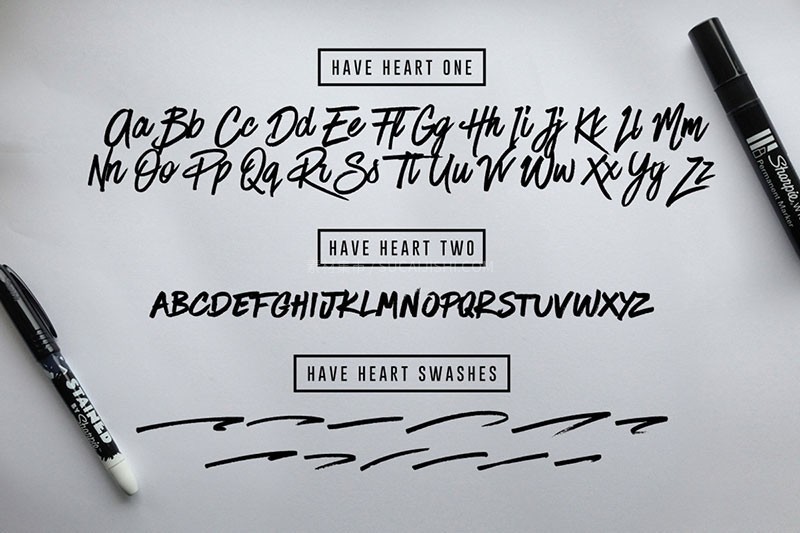 HAVE HEART ONE
Aa Bb Cc Dd Ee Ff Gg Hh Ii Jj Kk Ll Mm
Nn Oo Pp Qq Rr Ss Tt Uu Vv Ww Xx Yy Zz
HAVE HEART TWO
ABCDEFGHIJKLMNOPQRSTUVWXYZ
HAVE HEART SWASHES
STAINED
BY Sharpie
Sharpie
Permanent Marker